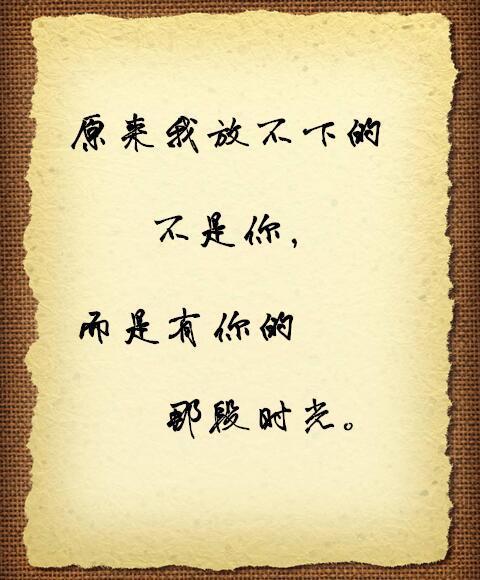 原来我放不下的
不是你,
而是有你的
那段时光。